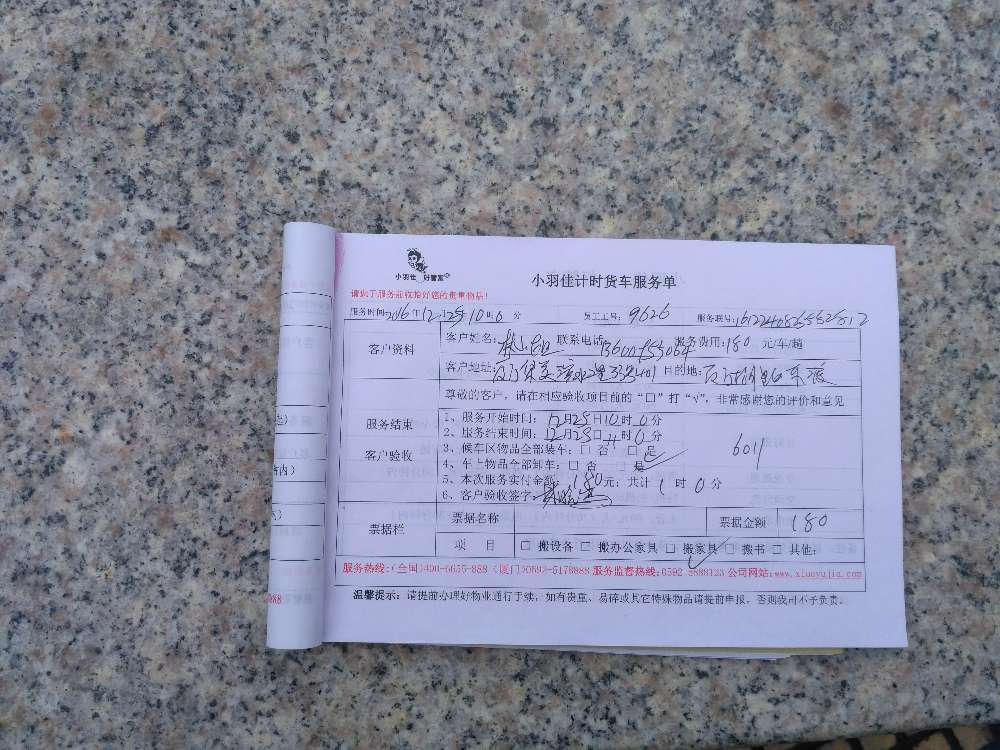 小羽佳 好管家
小羽佳计时货车服务单
请您于服务前收拾好您的贵重物品!
服务时间2016年12月25日10时0分 员工工号: 9626 服务联号:
客户资料 客户姓名: 联系电话 服务费用:180 元/车/趟
客户地址: 目的地:
尊敬的客户,请在相应验收项目前的“口”打“√”,非常感谢您的评价和意见
服务结束
客户验收
1、服务开始时间:12月25日10时0分
2、服务结束时间:12月25日11时0分
3、候车区物品全部装车:□ 否 □ 是
4、车上物品全部卸车:□ 否 □ 是
5、本次服务实付金额:180元;共计1时0分
6、客户验收签字:
6011
票据栏 票据名称 票据金额 180
项 目 □ 搬设备 □ 搬办公家具 □ 搬家具 □ 搬书 □ 其他:
服务热线:(全国)400-6655-888 (厦门)0592-5178888 服务监督热线:0592-5888123 公司网站:www.xiaoyujia.com
温馨提示:请提前办理好物业通行手续,如有贵重、易碎或其它特殊物品请提前申报,否则我司不予负责。